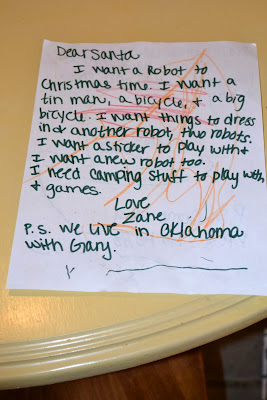 Dear Santa
I want a Robot to
Christmas time. I want a
tin man, a bicycle, & a big
bicycle. I want things to dress
in & another robot, two robots.
I want a sticker to play with &
I want a new robot too.
I need camping stuff to play with,
& games.
Love
Zane
P.S. we live in Oklahoma
with Gary.